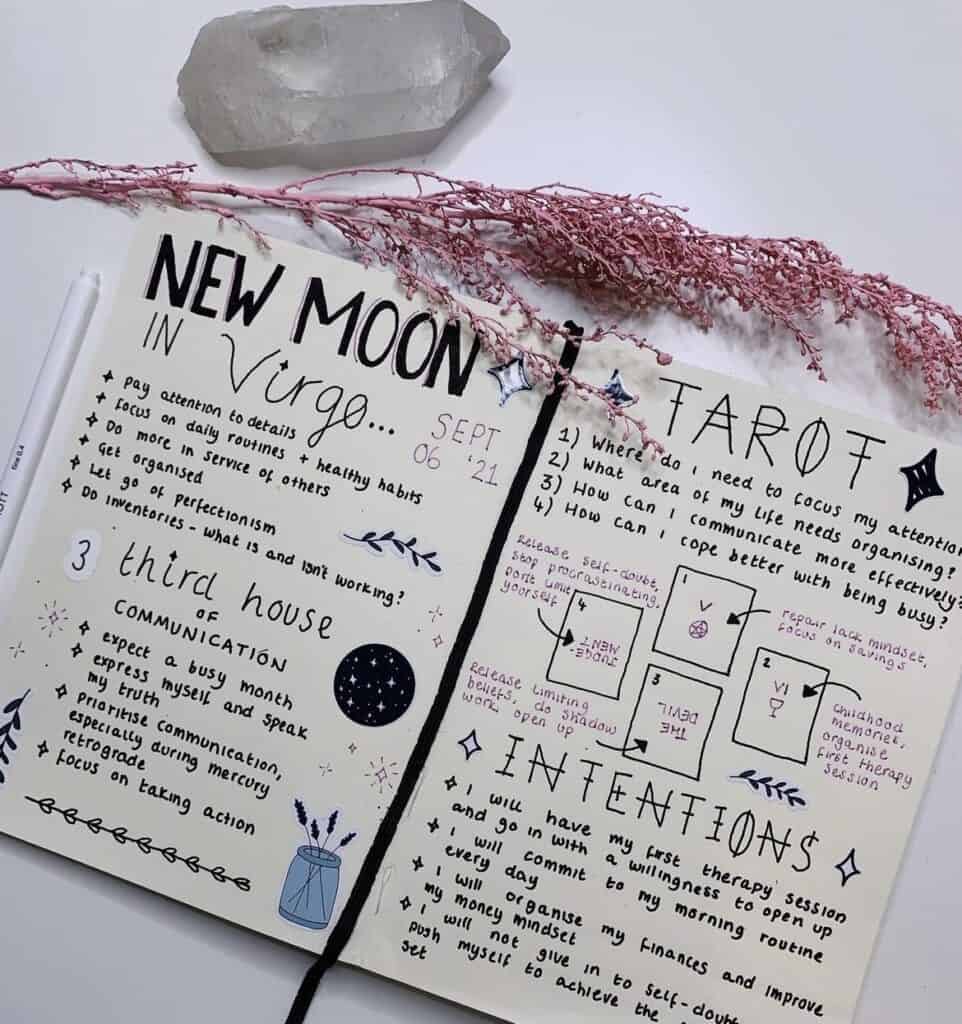 NEW MOON
IN Virgo...
SEPT
06 '21
Pay attention to details
Focus on daily routines + healthy habits
Do more in service of others
Get organised
Let go of perfectionism
Do inventories - what is and isn't working?
3 third house
OF
COMMUNICATION
expect a busy month
express myself and speak
my truth
Prioritise communication,
especially during mercury
retrograde
Focus on taking action
fine 0.4
TAROT
1) Where do I need to focus my attention
2) What area of my life needs organising?
3) How can I communicate more effectively?
4) How can I cope better with being busy?
Release self-doubt,
stop procrastinating,
don't limit
yourself
4
JUDGE-
MENT
1
V
repair lack mindset,
focus on savings
Release limiting
beliefs, do shadow
work, open up
3
THE
DEVIL
2
VI
Childhood
memories,
organise
first therapy
session
INTENTIONS
I will have my first therapy session
and go in with a willingness to open up
I will commit to my morning routine
every day
I will organise my finances and improve
my money mindset
I will not give in to self-doubt
push myself to achieve the
set